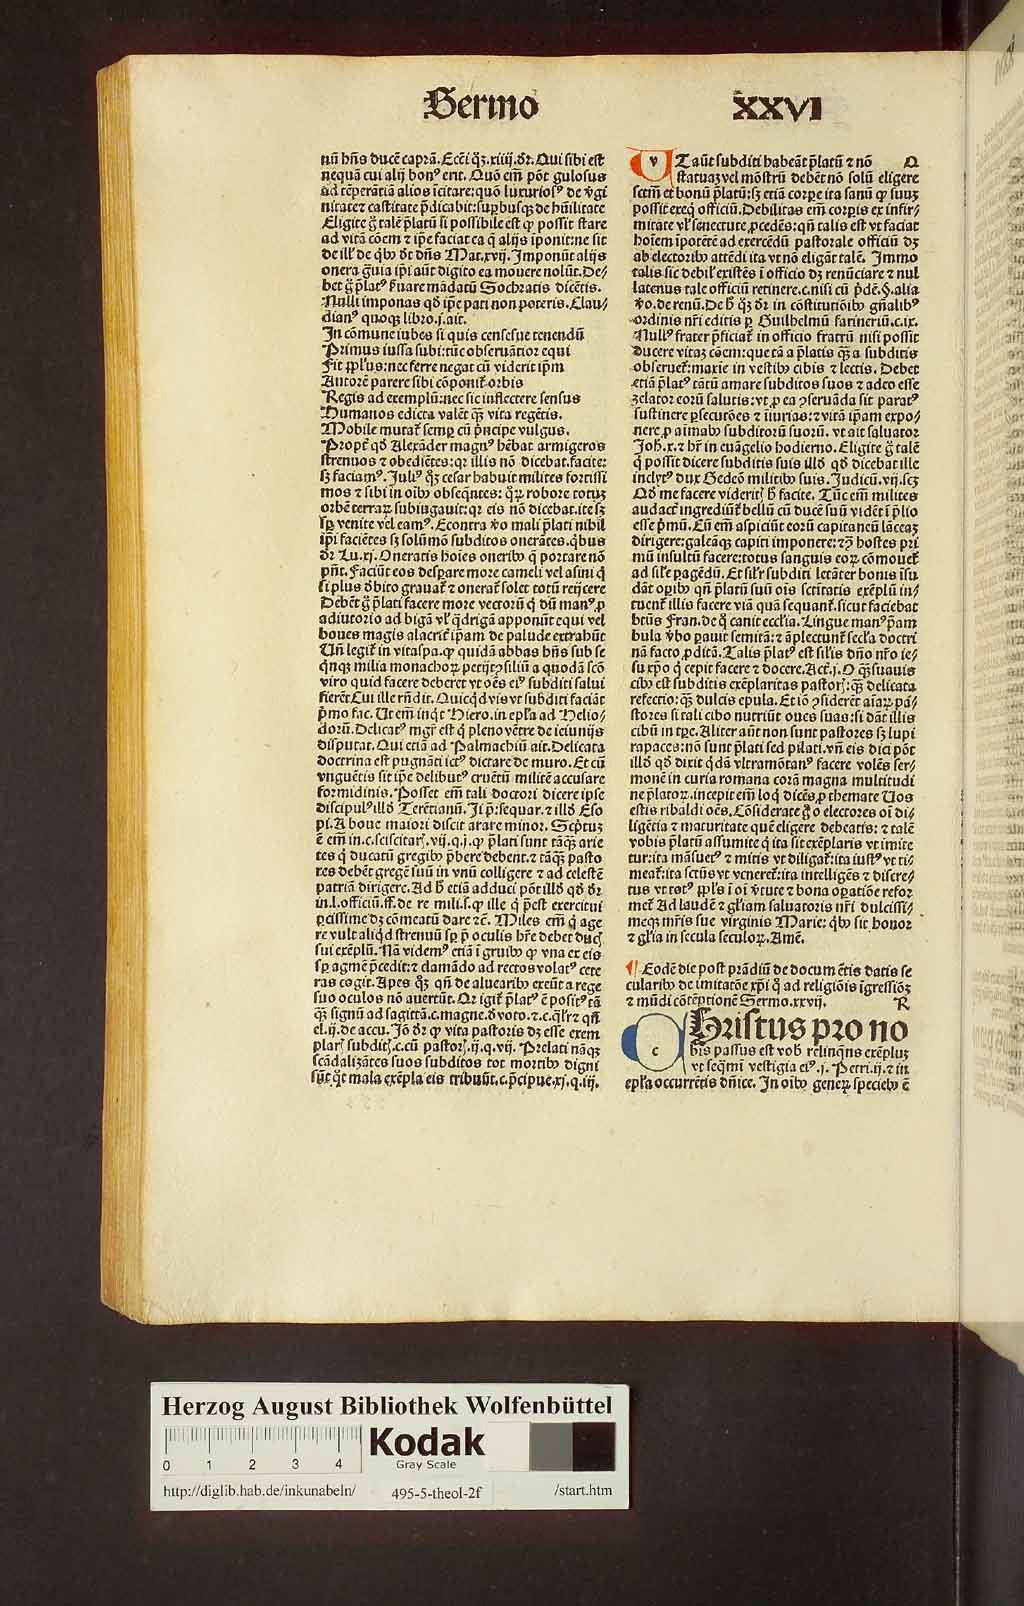 Sermo XXVI
nū hn̄s ducē caprā. Eccī qꝫ. xiiij. dr̄. Qui sibi est
nequā cui alij bonꝰ erit. Quō em̄ pōt gulosus
ad tēperātiā alios īcitare: quō luxuriosꝰ de v̓gi
nitate ⁊ castitate p̄dicabit: suꝑbusqꝫ de hūilitate
Eligite g̊ talē p̄latū si possibile est ꝙ possit stare
ad vitā cōem ⁊ ip̄e faciat ea q̄ alijs īponit: ne sit
de ill̓ de qͥbꝰ dt̄ dn̄s Mat. xvij. Imponūt alijs
onera g̊uia ip̄i aūt digito ea mouere nolūt. De-
bet g̊ p̄latꝰ s̓uare mādatū Socratis dicētis.
Nulli imponas qd̓ ip̄e pati non poteris. Clau-
dianꝰ quoqꝫ libro. j. ait.
In cōmune iubes si quis censesue tenendū
Primus iussa subi: tūc obseruātior equi
Fit ꝓpl̓us: nec ferre negat cū viderit ip̄m
Autorē parere sibi cōponit̉ orbis
Regis ad exemplū: nec sic inflectere sensus
Humanos edicta valēt qꝫ vita regētis.
Mobile mutat̉ semꝑ cū p̄ncipe vulgus.
Propt̓ qd̓ Alexāder magnꝰ hēbat armigeros
strenuos ⁊ obediētes: qr illis nō dicebat. facite:
sꝫ faciamꝰ. Juliꝰ qꝫ cesar habuit milites fortissi
mos ⁊ sibi in oībꝰ obseqntes: qꝝ robore totuꝫ
orbē terraꝝ subiugauit: qr eis nō dicebat. ite sꝫ
sꝑ venite vel eamꝰ. Econtra v̓o mali p̄lati nihil
ip̄i faciētes sꝫ solūmō subditos onerātes. qͥbus
dr̄ Lu. xj. Oneratis hoīes oneribꝰ q̄ portare nō
pn̄t. Faciūt eos desꝑare more cameli vel asini q̄
si plus d̓bito grauat̉ ⁊ onerat̉ solet totū reijcere
Debēt g̊ p̄lati facere more vectorū q̄ dū manꝰ ꝓ
adiutorio ad bigā vl̓ qͣdrigā apponūt equi vel
boues magis alacrit̓ ip̄am de palude extrahūt
Vn̄ legit̉ in vitaspa. ꝙ quidā abbas hn̄s sub se
qͥnqꝫ milia monachoꝝ petijt ꝯsiliū a quodā scō
viro quid facere deberet vt oēs eiꝰ subditi salui
fierēt. Cui ille rn̄dit. Quicqͥd vis vt subditi faciāt
p̄mo fac. Ut em̄ inqͥt Hiero. in epl̓a ad Helio-
dorū. Delicatꝰ mgr̄ est q̄ pleno vētre de ieiunijs
disputat. Qui etiā ad Palmachiū ait. Delicata
doctrina est pugnāti ictꝰ dictare de muro. Et cū
vnguētis sit ip̄e delibutꝰ cruētū militē accusare
formidinis. Posset em̄ tali doctori dicere ipse
discipulꝰ illd̓ Terētianū. Ji p̄: sequar. ⁊ illd̓ Eso
pi. A boue maiori discit arare minor. Scp̄tuꝫ
ē em̄ in. c. sciscitarꝭ. vij. q. j. ꝙ p̄lati sunt tāqꝫ arie
tes q̄ ducatū gregibꝰ p̄bere debent. ⁊ tāqꝫ pasto
res debēt gregē suū in vnū colligere ⁊ ad celestē
patriā dirigere. Ad h̓ etiā adduci pōt illd̓ qd̓ dr̄
in. l. officiū. ff. de re mili. s. ꝙ ille q̄ p̄est exercitui
ꝑcissime dꝫ cōmeatū dare ⁊c̄. Miles em̄ q̄ age
re vult aliqͥd strenuū sꝑ p̄ oculis hr̄e debet ducꝭ
sui exēplū. Nā videmꝰ etiā ī gruibꝰ ꝙ vna ex eis
sꝑ agmē p̄cedit: ⁊ damādo ad rectos volatꝰ cete
ras cogit. Apes qꝫ qn̄ de aluearibꝰ exeūt a rege
suo oculos nō auertūt. Qr igit̉ p̄latꝰ ē positꝰ tā
qꝫ signū ad sagittā. c. magne. d̓ voto. ⁊. c. qͥl̓r ⁊ qn̄
el. ij. de accu. Jō dr̄ ꝙ vita pastoris dꝫ esse exem
plarꝭ subditꝭ. c. cū pastorꝭ. ij. q. vij. Prelati nāqꝫ
scādalizātes suos subditos tot mortibꝰ digni
sūt qͦt mala exēpla eis tribuūt. c. p̄cipue. xj. q. iij.
UTaūt subditi habeāt p̄latū ⁊ nō Q
statuaꝫ vel mōstrū debēt nō solū eligere
sctm̄ et bonū p̄latū: sꝫ etiā corꝑe ita sanū ꝙ suuꝫ
possit exeq̄ officiū. Debilitas em̄ corꝑis ex infir-
mitate vl̓ senectute ꝓcedēs: qn̄ talis est vt faciat
hoīem īpotētē ad exercēdū pastorale officiū dꝫ
ab electoribꝰ attēdi ita vt nō eligāt talē. Immo
talis sic debil̓ existēs ī officio dꝫ renūciare ⁊ nul
latenus tale officiū retinere. c. nisi cū p̄dē. §. alia
v̓o. de renū. De h̓ qꝫ dr̄ in cōstitutōibꝰ gn̄alibꝰ
ordinis nr̄i editis ꝑ Guilhelmū farineriū. c. ix.
Nullꝰ frater p̄ficiat̉ in officio fratrū nisi possit
ducere vitaꝫ cōem: que tā a p̄latis qꝫ a subditis
obseruet̉: maxie in vestibꝰ cibis ⁊ lectis. Debet
etiā p̄latꝰ tātū amare subditos suos ⁊ adeo esse
zelator eorū salutis: vt ꝓ ea ꝯseruāda sit paratꝰ
sustinere ꝑsecutōes ⁊ īiurias: ⁊ vitā ip̄am expo-
nere ꝓ aīmabꝰ subditorū suorū. vt ait saluator
Joh̄. x. ⁊ hr̄ in euāgelio hodierno. Eligite g̊ talē
q̄ possit dicere subditis suis illd̓ qd̓ dicebat ille
inclytꝰ dux Gedeō militibꝰ suis. Judicū. vij. scꝫ
Qd̓ me facere videritꝭ h̓ facite. Tūc em̄ milites
audact̓ ingrediūt̉ bellū cū ducē suū vidēt ī p̄lio
esse p̄mū. Cū em̄ aspiciūt eorū capitaneū lāceaꝫ
dirigere: galeāqꝫ capiti imponere: ⁊ ꝯ̄ hostes pri
mū insultū facere: totus sanguis eoꝝ cōmouet̉
ad sil̓e pagēdū. Et sil̓r subditi letāter bonis īsu
dāt oꝑibꝰ qn̄ p̄latū suū oīs sctitatis exēplū in-
tuent̉ illis facere viā quā sequant̉. sicut faciebat
btūs Fran. de q̄ canit eccl̓ia. Lingue manꝰ p̄am
bula v̓bo ꝑauit semitā: ⁊ āplectunt̉ secl̓a doctri
nā facto ꝓditā. Talis p̄latꝰ est sil̓is dn̄o nr̄o ie-
su xp̄o q̄ cepit facere ⁊ docere. Act. j. O qꝫ suauis
cibꝰ est subditis exēplaritas pastorꝭ: qꝫ delicata
refectio: qꝫ dulcis epula. Et iō ꝯsiderēt aīaꝝ pa-
stores si tali cibo nutriūt oues suas: si dāt illis
cibū in tꝑe. Aliter aūt non sunt pastores sꝫ lupi
rapaces: nō sunt p̄lati sed pilati. vn̄ eis dici pōt
illd̓ qd̓ dixit qͥdā vltramōtanꝰ facere volēs ser-
monē in curia romana corā magna multitudi
ne p̄latoꝝ. incepit em̄ loq̄ dicēs ꝓ themate Uos
estis ribaldi oēs. Cōsiderate g̊ o electores oī di-
ligētia ⁊ maturitate quē eligere debeatis: ⁊ talē
vobis p̄latū assumite q̄ ita sit exēplaris vt imite
tur: ita māsuetꝰ ⁊ mitis vt diligat̉: ita iustꝰ vt ti-
meat̉: ita sctūs vt veneret̉: ita intelligēs ⁊ discre-
tus vt totꝰ ꝓpl̓s ī oī v̓tute ⁊ bona oꝑatiōe refor
met̉. Ad laudē ⁊ gl̓iam saluatoris nr̄i dulcissi-
meqꝫ mr̄is sue virginis Marie: qͥbꝰ sit honor
⁊ gl̓ia in secula seculoꝝ. Amē.
¶ Eodē die post prādiū de documētis datis se
cularibꝰ de imitatōe xp̄i q̄ ad religiōis īgressiōꝫ
⁊ mūdi cōtēptionē Sermo. xxvij. R
CHristus pro no
bis passus est vob̓ relinqͥns exēpluꝫ
vt seqͣmī vestigia eiꝰ. j. Petri. ij. ⁊ in
epl̓a occurrētis dn̄ice. In oībꝰ geneꝝ speciebꝰ ē
Herzog August Bibliothek Wolfenbüttel
0 1 2 3 4
Kodak
Gray Scale
http://diglib.hab.de/inkunabeln/ 495-5-theol-2f /start.htm